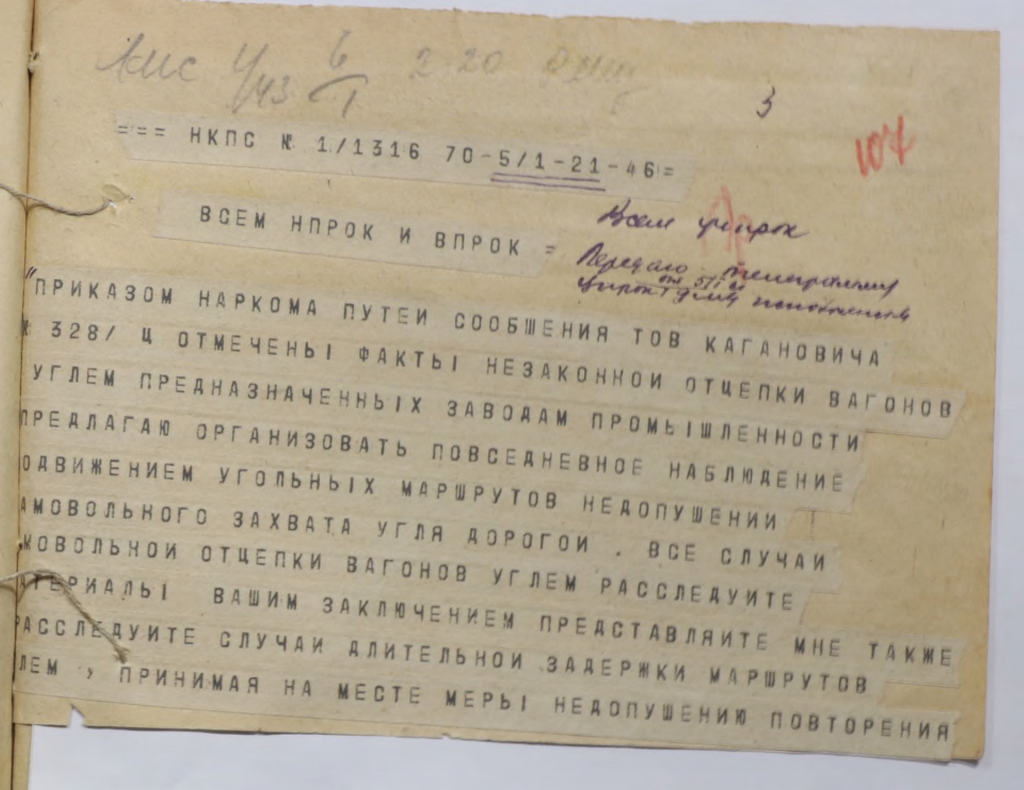 6
2 20
3
107
=== НКПС № 1/1316 70-5/1-21-46=
ВСЕМ НПРОК И ВПРОК =
Всем
Передаю телеграмму
"ПРИКАЗОМ НАРКОМА ПУТЕИ СООБШЕНИЯ ТОВ КАГАНОВИЧА
№ 328/ Ц ОТМЕЧЕНЫ ФАКТЫ НЕЗАКОННОИ ОТЦЕПКИ ВАГОНОВ
УГЛЕМ ПРЕДНАЗНАЧЕННЫХ ЗАВОДАМ ПРОМЫШЛЕННОСТИ
ПРЕДЛАГАЮ ОРГАНИЗОВАТЬ ПОВСЕДНЕВНОЕ НАБЛЮДЕНИЕ
ОДВИЖЕНИЕМ УГОЛЬНЫХ МАРШРУТОВ НЕДОПУШЕНИИ
АМОВОЛЬНОГО ЗАХВАТА УГЛЯ ДОРОГОИ . ВСЕ СЛУЧАИ
МОВОЛЬНОИ ОТЦЕПКИ ВАГОНОВ УГЛЕМ РАССЛЕДУИТЕ
АТЕРИАЛЫ ВАШИМ ЗАКЛЮЧЕНИЕМ ПРЕДСТАВЛЯИТЕ МНЕ ТАКЖЕ
РАССЛЕДУИТЕ СЛУЧАИ ДЛИТЕЛЬНОИ ЗАДЕРЖКИ МАРШРУТОВ
ЛЕМ , ПРИНИМАЯ НА МЕСТЕ МЕРЫ НЕДОПУШЕНИЮ ПОВТОРЕНИЯ